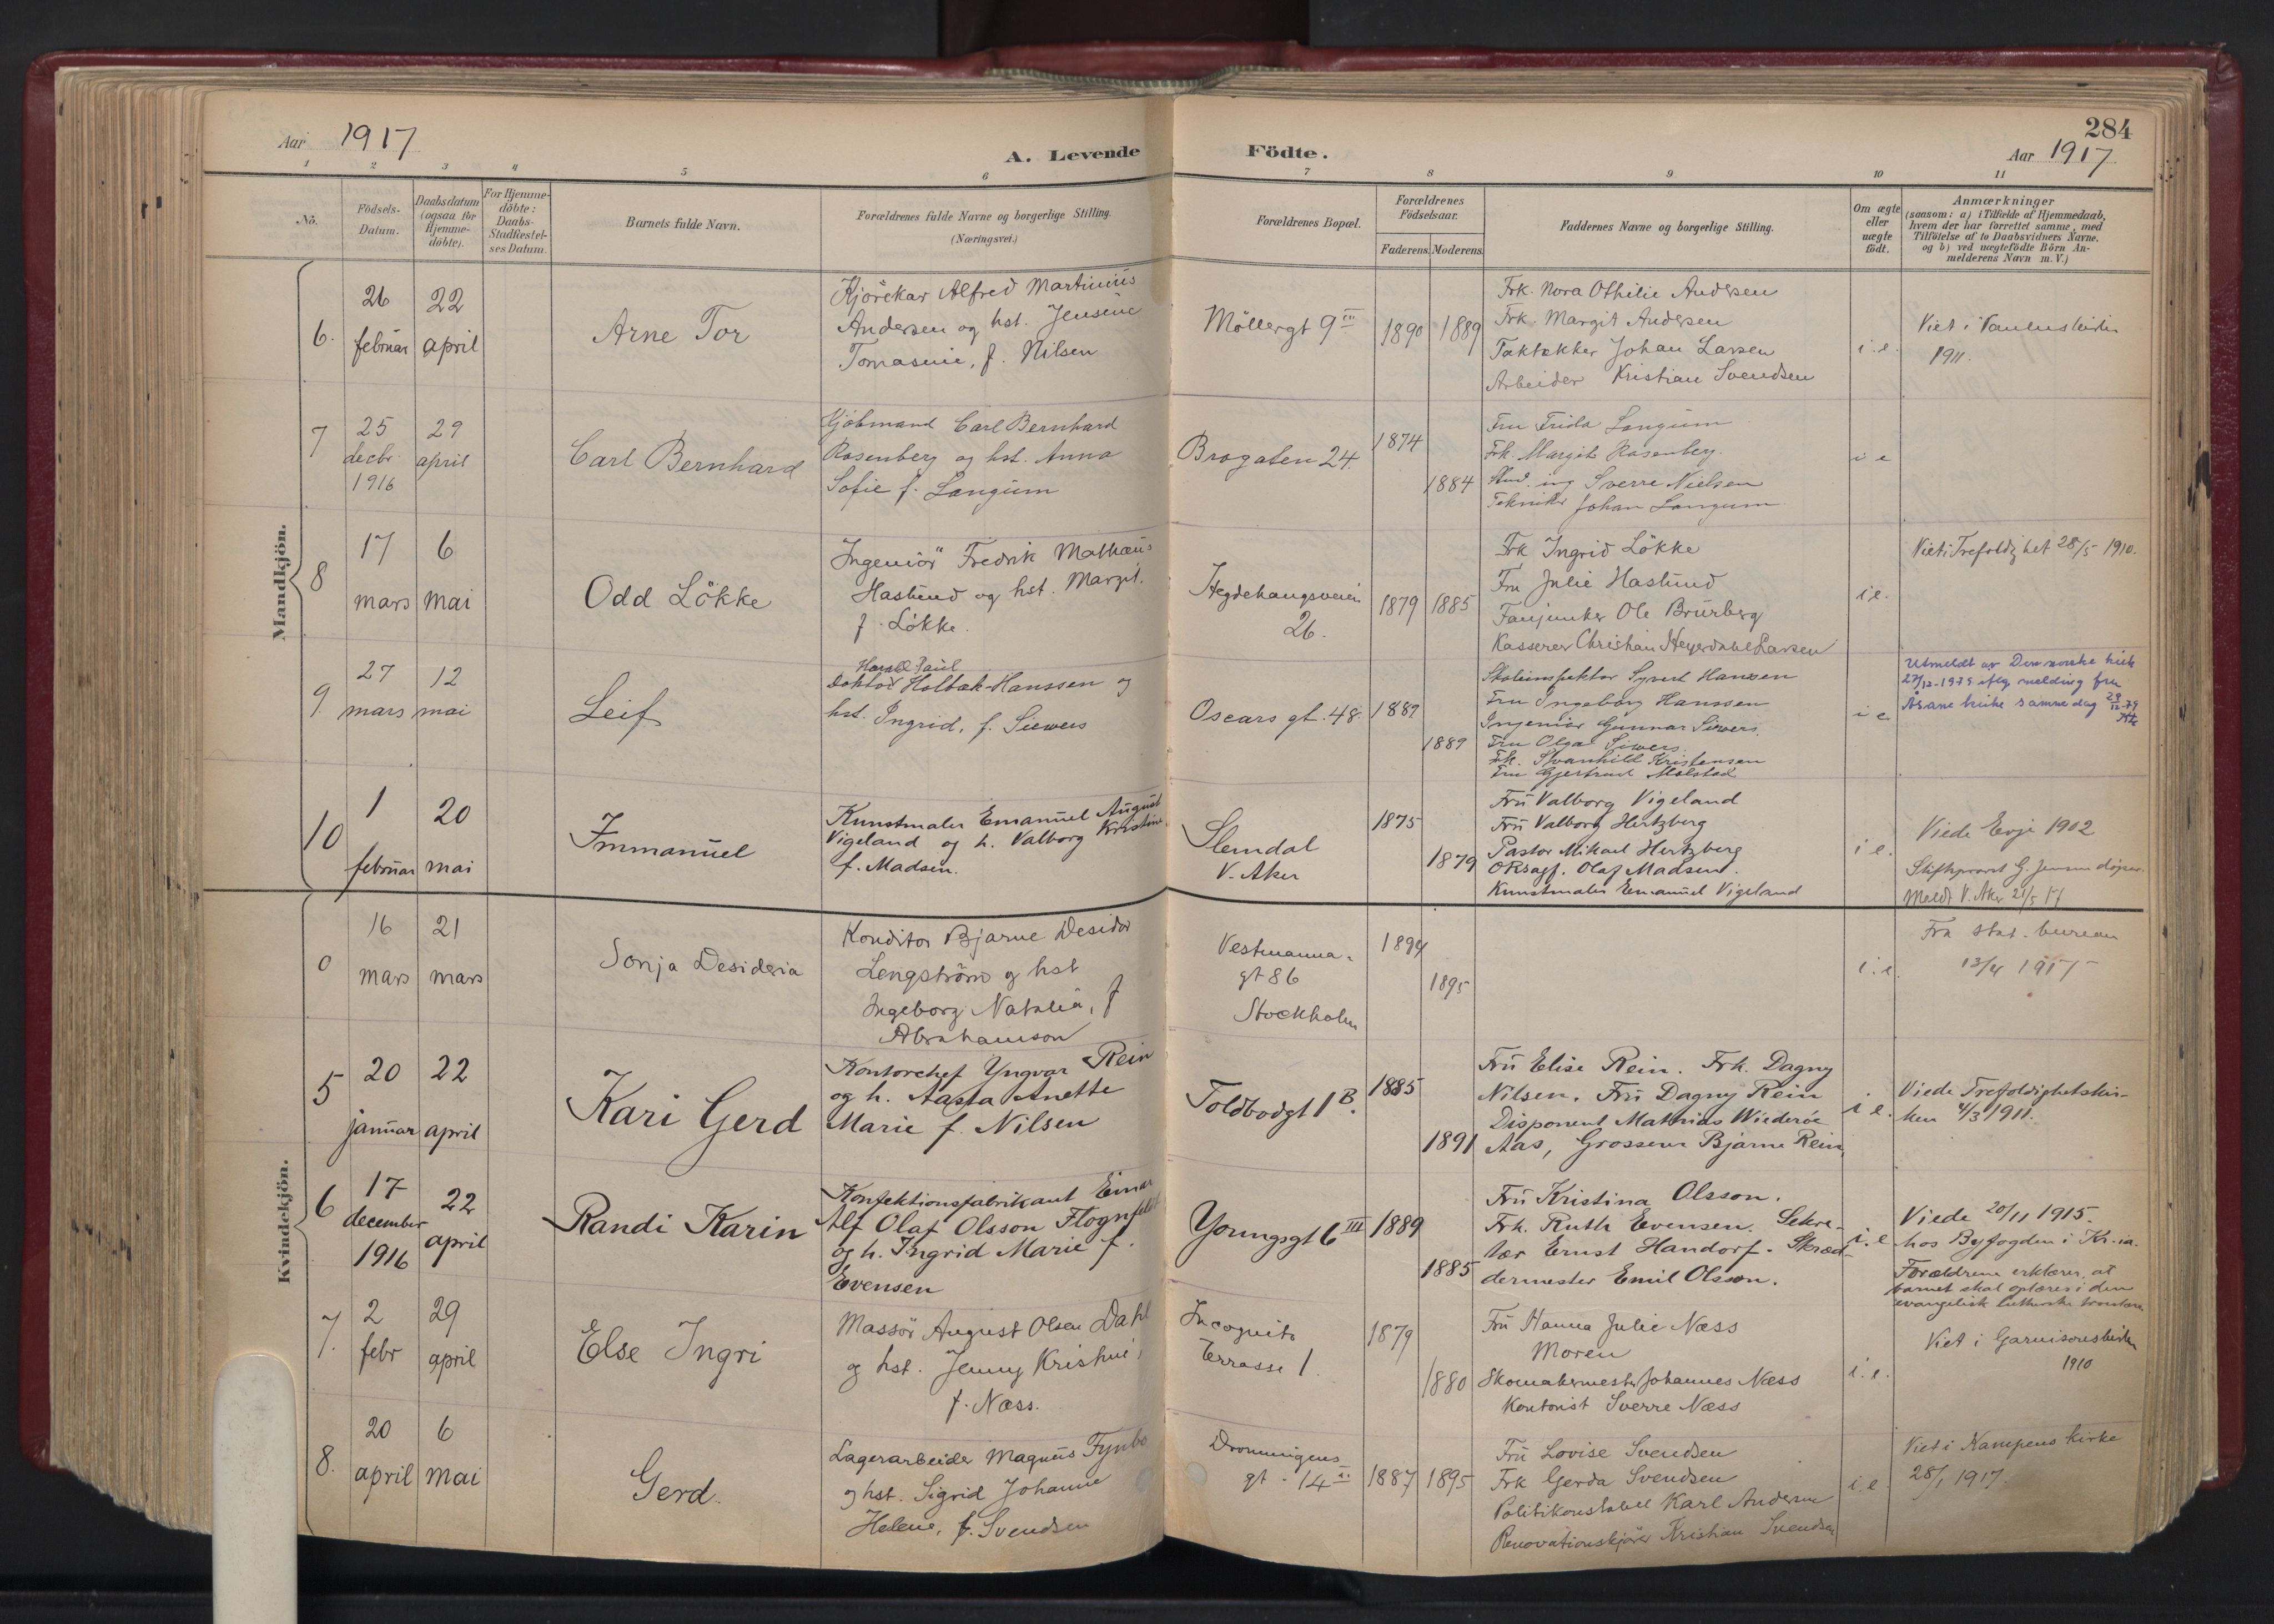 Aar 1917
A. Levende Födte.
284
Aar 1917
1 2 3 4 5 6 7 8 9 10 11
No.
Födsels-
Datum.
Daabsdatum
(ogsaa for
Hjemme-
döbte).
For Hjemme-
döbte:
Daabs-
Stadfæstel-
ses Datum.
Barnets fulde Navn.
Forældrenes fulde Navne og borgerlige Stilling.
(Næringsvei.)
Forældrenes Bopæl.
Forældrenes
Födselsaar.
Faderens. Moderens.
Faddernes Navne og borgerlige Stilling.
Om ægte
eller
uægte
födt.
Anmærkninger
(saasom: a) i Tilfælde af Hjemmedaab,
hvem der har forrettet samme, med
Tilföielse af to Daabsvidners Navne.
og b) ved uægtefödte Börn An-
melderens Navn m. V.)
Mandkjön.
6.
26
februar
22
april
Arne Tor
Kjørekar Alfred Martinius
Andersen og hst. Jensine
Tomasine, f. Nilsen
Möllergt 9 III
1890
1889
Frk. Nora Othilie Andersen
Frk. Margit Andersen
Taktækker Johan Larsen
Arbeider Kristian Svendsen
i.e.
Viet i Pauluskirken
1911.
7
25
decbr.
1916
29
april
Carl Bernhard
Kjöbmand Carl Bernhard
Rosenberg og hst. Anna
Sofie f. Langum
Brogaten 24.
1874
1884
Fru Frida Langum
Frk. Margit Rosenberg.
Stud. ing Sverre Nielsen
Tekniker Johan Langum
i e
8
17
mars
6
mai
Odd Lökke
Ingeniör Fredrik Mathæus
Haslund og hst. Margit.
f. Lökke.
Hegdehaugsveien
26.
1879
1885
Frk Ingrid Lökke
Fru Julie Haslund
Fanejunker Ole Brurberg
Kasserer Christian Heyerdahl Larsen
i e.
Viet i Trefoldighet 28/5 1910.
9.
27
mars
12
mai
Leif
Harald Paul
Doktor Holbæk-Hanssen og
hst. Ingrid, f. Siewers
Oscars gt. 48.
1889
1889
Skoleinspektør Syvert Hanssen
Fru Ingeborg Hanssen
Ingeniør Gunnar Siewers.
Fru Olga Siewers
Frk. Svanhild Kristensen
Fru Gjertrud Mølstad
i e
Utmeldt av Den norske kirke
27/12-1979 iflg melding fra
Åsane kirke samme dag
10
1
februar
20
mai
Immanuel
Kunstmaler Emanuel August
Vigeland og h. Valborg Kristine
f. Madsen.
Slemdal
V. Aker
1875
1879
Fru Valborg Vigeland
Fru Valborg Hertzberg
Pastor Mikael Hertzberg
O.R.sagf. Olaf Madsen.
Kunstmaler Emanuel Vigeland
i e.
Viede Evje 1902
Stiftsprovst G. Jensen
Meldt V. Aker 21/5 17
Kvindekjön.
0
16
mars
21
mars
Sonja Desideria
Konditor Bjarne Desidor
Lengström og hst
Ingeborg Natalia, f
Abrahamson
Vestmanna-
gt 86
Stockholm
1894
1895
i.e.
Fra stat. bureau
13/4 1917
5
20
januar
22
april
Kari Gerd
Kontorchef Yngvar Rein
og h. Aasta Anette
Marie f. Nilsen
Toldbodgt 1 B.
1885
1891
Fru Elise Rein. Frk. Dagny
Nilsen. Fru Dagny Rein
Disponent Mathias Widerøe
Aas, Grosserer Bjarne Rein.
i e.
Viede Trefoldighetskir-
ken 4/3 1911.
6
17
december
1916
22
april
Randi Karin
Konfektionsfabrikant Einar
Alf Olaf Olsson Flognfeldt
og h. Ingrid Marie f.
Evensen
Youngsgt 6 III
1889
1885
Fru Kristina Olsson.
Frk. Ruth Evensen. Sekre-
tær Ernst Handorf. Skræd-
dermester Emil Olsson.
i. e
Viede 20/11 1915.
hos Byfogden i Kr.ia.
Forældrene erklærer, at
barnet skal oplæres i den
evangelisk lutherske troslære
7.
2
febr
29
april
Else Ingri
Massör August Olsen Dahl
og hst. Jenny Kristine,
f. Næss.
Incognito
Terrasse 1.
1879
1880
Fru Hanna Julie Næss
Moren
Skomakermester Johannes Næss
Kontorist Sverre Næss
i. e.
Viet i Garnisonskirken
1910
8.
20
april
6
mai
Gerd.
Lagerarbeider Magnus Tynbo
og hst. Sigrid Johanne
Helene, f. Svendsen
Dronningens
gt. 14 II
1887
1895
Fru Lovise Svendsen
Frk Gerda Svendsen
Politikonstabel Karl Andersen
Renovationskjører Kristian Svendsen
i. e.
Viet i Kampens kirke
28/1 1917.